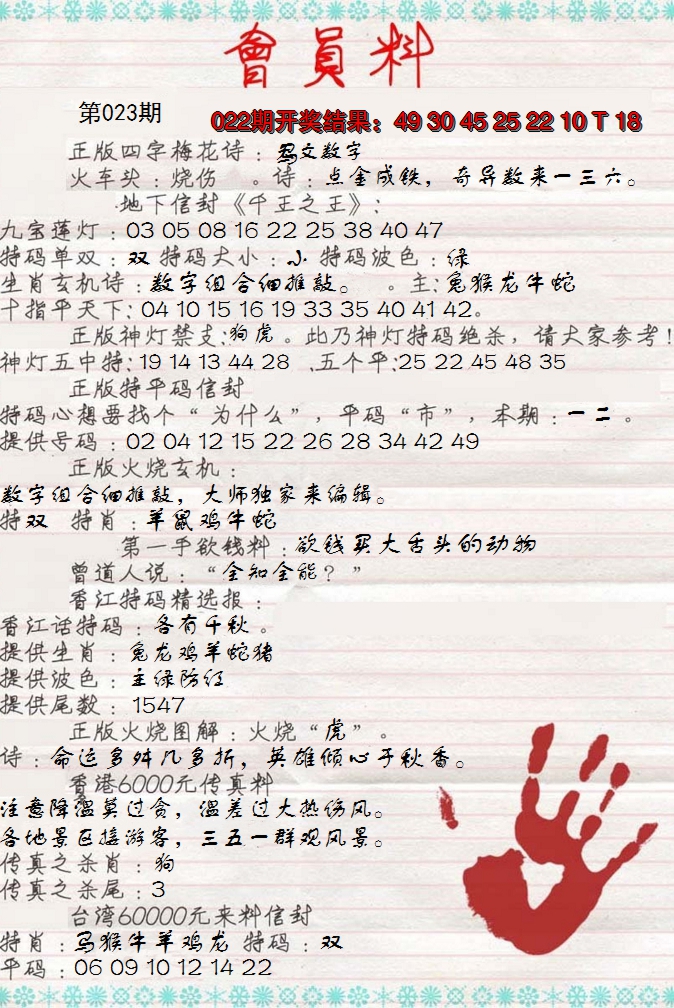 會員料
第023期
022期开奖结果：49 30 45 25 22 10 T 18
正版四字梅花诗：忽文数字
火车头：烧伤 。诗：点金成铁，奇异数来一三六。
地下信封《千王之王》：
九宝莲灯：03 05 08 16 22 25 38 40 47
特码单双：双 特码大小：小 特码波色：绿
生肖玄机诗：数字组合细推敲。 。主：兔猴龙牛蛇
十指平天下：04 10 15 16 19 33 35 40 41 42。
正版神灯禁支：狗虎 。此乃神灯特码绝杀，请大家参考！
神灯五中特：19 14 13 44 28 .五个平：25 22 45 48 35
正版特平码信封
特码心想要找个“为什么”，平码“市”，本期：一二 。
提供号码：02 04 12 15 22 26 28 34 42 49
正版火烧玄机：
数字组合细推敲，大师独家来编辑。
特双 特肖：羊鼠鸡牛蛇
第一手欲钱料：欲钱买大舌头的动物
曾道人说：“全知全能？”
香江特码精选报：
香江话特码：各有千秋 。
提供生肖：兔龙鸡羊蛇猪
提供波色：主绿防红
提供尾数：1547
正版火烧图解：火烧“虎” 。
诗：命运多舛几多折，英雄倾心于秋香。
香港6000元传真料
注意降温莫过贪，温差过大热伤风。
各地景区接游客，三五一群观风景。
传真之杀肖：狗
传真之杀尾：3
台湾60000元来料信封
特肖：马猴牛羊鸡龙 特码：双
平码：06 09 10 12 14 22